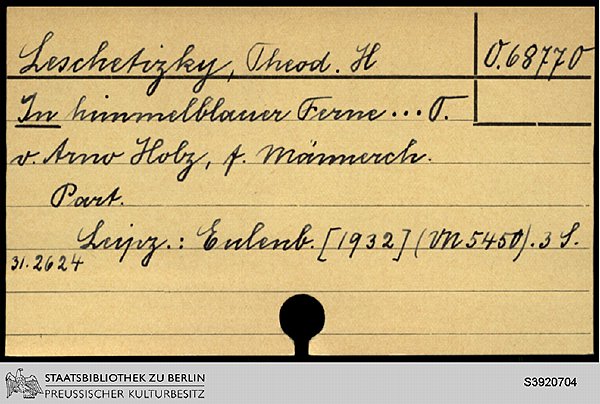 Leschetizky, Theod. H
O.68770
In himmelblauer Ferne... T.
v. Arno Holz, f. Männerch.
Part.
Leipz.: Eulenb. [1932] (VN 5450). 3 S.
31.2624
STAATSBIBLIOTHEK ZU BERLIN
PREUSSISCHER KULTURBESITZ
S3920704